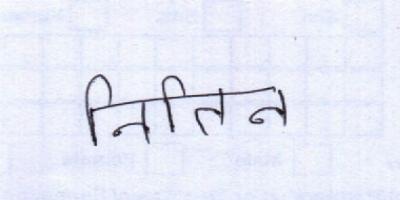 नितिन